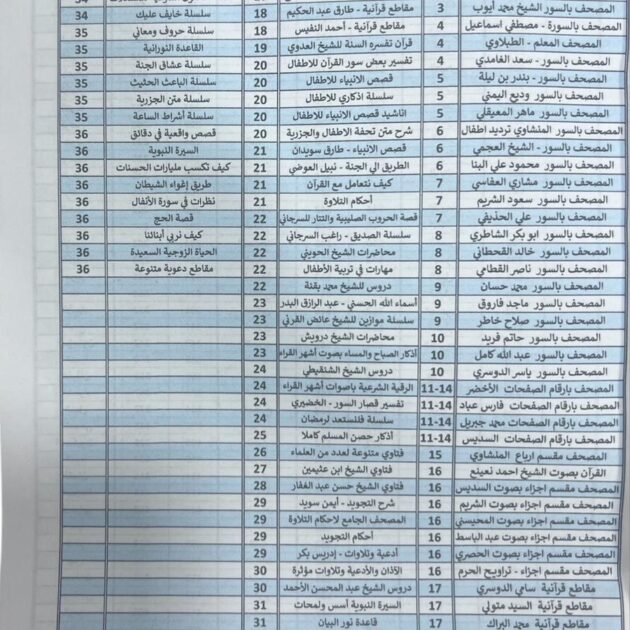 المصحف بالسور الشيخ محمد أيوب 3 مقاطع قرآنية - طارق عبد الحكيم 18 سلسلة خايف عليك 34
المصحف بالسورة - مصطفى اسماعيل 4 مقاطع قرآنية - أحمد النفيس 18 سلسلة حروف ومعاني 35
المصحف المعلم - الطبلاوي 4 قرآن تفسره السنة للشيخ العدوي 19 القاعدة النورانية 35
المصحف بالسور - سعد الغامدي 4 تفسير بعض سور القرآن للأطفال 20 سلسلة عشاق الجنة 35
المصحف بالسور - بندر بن ليلة 5 قصص الانبياء للأطفال 20 سلسلة الباعث الحثيث 35
المصحف بالسور وديع اليمني 5 سلسلة اذكاري للأطفال 20 سلسلة متن الجزرية 35
المصحف بالسور ماهر المعيقلي 5 اناشيد قصص الانبياء للأطفال 20 سلسلة أشراط الساعة 35
المصحف بالسور المنشاوي ترديد اطفال 6 شرح متن تحفة الاطفال والجزرية 20 قصص واقعية في دقائق 36
المصحف بالسور - الشيخ العجمي 6 قصص الانبياء - طارق سويدان 21 السيرة النبوية 36
المصحف بالسور محمود علي البنا 6 الطريق الي الجنة - نبيل العوضي 21 كيف تكسب مليارات الحسنات 36
المصحف بالسور مشاري العفاسي 7 كيف نتعامل مع القرآن 21 طريق إغواء الشيطان 36
المصحف بالسور سعود الشريم 7 أحكام التلاوة 21 نظرات في سورة الأنفال 36
المصحف بالسور علي الحذيفي 7 قصة الحروب الصليبية والتتار للسرجاني 22 قصة الحج 36
المصحف بالسور ابو بكر الشاطري 8 سلسلة الصديق - راغب السرجاني 22 كيف نربي أبنائنا 36
المصحف بالسور خالد القحطاني 8 محاضرات الشيخ الحويني 22 الحياة الزوجية السعيدة 36
المصحف بالسور ناصر القطامي 8 مهارات في تربية الأطفال 22 مقاطع دعوية متنوعة 36
المصحف بالسور محمد حسان 9 دروس للشيخ محمد بقنة 22
المصحف بالسور ماجد فاروق 9 أسماء الله الحسني - عبد الرازق البدر 23
المصحف بالسور صلاح خاطر 9 سلسلة موازين للشيخ عائض القرني 23
المصحف بالسور حاتم فريد 10 محاضرات الشيخ درويش 23
المصحف بالسور عبد الله كامل 10 أذكار الصباح والمساء بصوت أشهر القراء 23
المصحف بالسور ياسر الدوسري 10 دروس الشيخ الشنقيطي 24
المصحف بارقام الصفحات الأخضر 11-14 الرقية الشرعية باصوات أشهر القراء 24
المصحف بارقام الصفحات فارس عباد 11-14 تفسير قصار السور - الخضيري 24
المصحف بارقام الصفحات محمد جبريل 11-14 سلسلة فلنستعد لرمضان 24
المصحف بارقام الصفحات السديس 11-14 أذكار حصن المسلم كاملا 25
المصحف مقسم ارباع المنشاوي 15 فتاوي متنوعة لعدد من العلماء 26
القرآن بصوت الشيخ احمد نعينع 16 فتاوي الشيخ ابن عثيمين 27
المصحف مقسم اجزاء بصوت السديس 16 فتاوي الشيخ حسن عبد الغفار 28
المصحف مقسم اجزاء بصوت الشريم 16 شرح التجويد - أيمن سويد 29
المصحف مقسم اجزاء بصوت المحيسني 16 المصحف الجامع لاحكام التلاوة 29
المصحف مقسم اجزاء بصوت عبد الباسط 16 أحكام التجويد 29
المصحف مقسم اجزاء بصوت الحصري 16 أدعية وتلاوات - إدريس بكر 29
المصحف مقسم اجزاء - تراويح الحرم 16 الآذان والأدعية وتلاوات مؤثرة 30
مقاطع قرآنية سامي الدوسري 17 دروس الشيخ عبد المحسن الأحمد 30
مقاطع قرآنية السيد متولي 17 السيرة النبوية أسس ولمحات 31
مقاطع قرآنية محمد البراك 17 قاعدة نور البيان 31